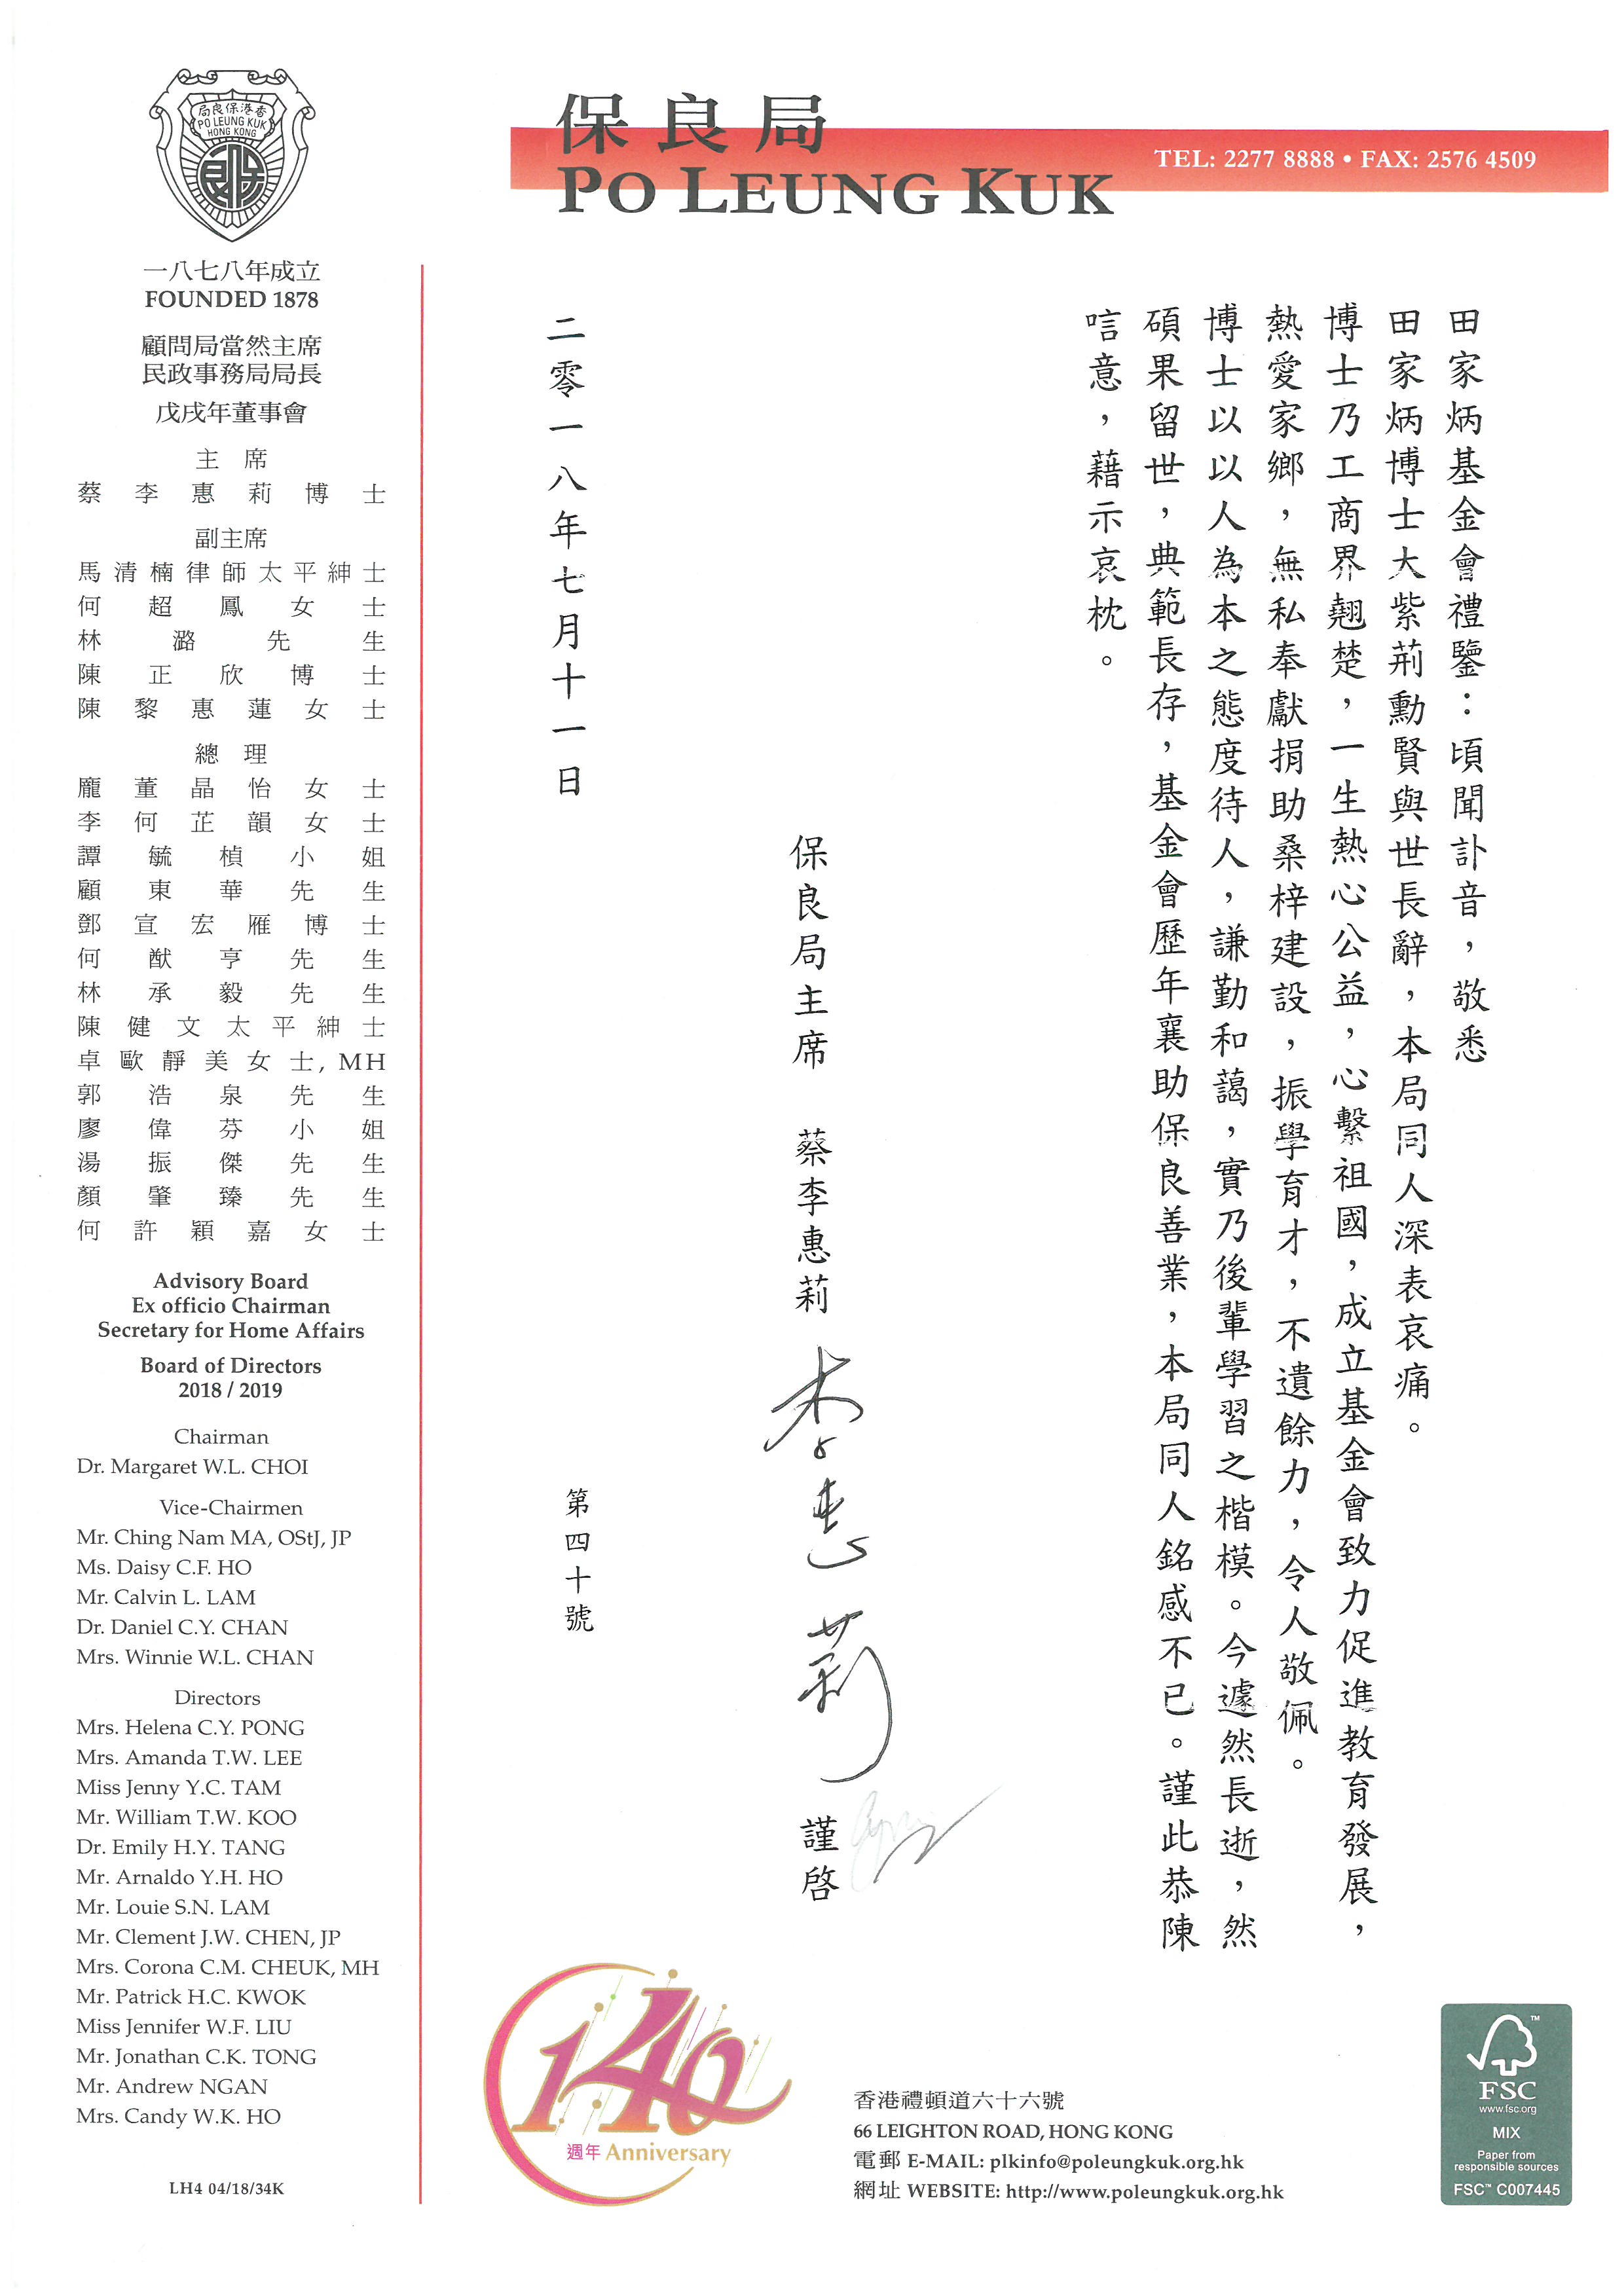 香港保良局
PO LEUNG KUK
HONG KONG
保良局
PO LEUNG KUK
TEL: 2277 8888 • FAX: 2576 4509
一八七八年成立
FOUNDED 1878
顧問局當然主席
民政事務局局長
戊戌年董事會
主席
蔡李惠莉博士
副主席
馬清楠律師太平紳士
何超鳳女士
林潞先生
陳正欣博士
陳黎惠蓮女士
總理
龐董晶怡女士
李何芷韻女士
譚毓楨小姐
顧東華先生
鄧宣宏雁博士
何猷亨先生
林承毅先生
陳健文太平紳士
卓歐靜美女士, MH
郭浩泉先生
廖偉芬小姐
湯振傑先生
顏肇臻先生
何許穎嘉女士
Advisory Board
Ex officio Chairman
Secretary for Home Affairs
Board of Directors
2018 / 2019
Chairman
Dr. Margaret W.L. CHOI
Vice-Chairmen
Mr. Ching Nam MA, OStJ, JP
Ms. Daisy C.F. HO
Mr. Calvin L. LAM
Dr. Daniel C.Y. CHAN
Mrs. Winnie W.L. CHAN
Directors
Mrs. Helena C.Y. PONG
Mrs. Amanda T.W. LEE
Miss Jenny Y.C. TAM
Mr. William T.W. KOO
Dr. Emily H.Y. TANG
Mr. Arnaldo Y.H. HO
Mr. Louie S.N. LAM
Mr. Clement J.W. CHEN, JP
Mrs. Corona C.M. CHEUK, MH
Mr. Patrick H.C. KWOK
Miss Jennifer W.F. LIU
Mr. Jonathan C.K. TONG
Mr. Andrew NGAN
Mrs. Candy W.K. HO
LH4 04/18/34K
田家炳基金會禮鑒：頃聞訃音，敬悉
田家炳博士大紫荊勳賢與世長辭，本局同人深表哀痛。
博士乃工商界翹楚，一生熱心公益，心繫祖國，成立基金會致力促進教育發展，
熱愛家鄉，無私奉獻捐助桑梓建設，振學育才，不遺餘力，令人敬佩。
博士以以人為本之態度待人，謙勤和藹，實乃後輩學習之楷模。今遽然長逝，然
碩果留世，典範長存，基金會歷年襄助保良善業，本局同人銘感不已。謹此恭陳
唁意，藉示哀枕。
保良局主席 蔡李惠莉 李惠莉 謹啓
二零一八年七月十一日
第四十號
140
週年 Anniversary
香港禮頓道六十六號
66 LEIGHTON ROAD, HONG KONG
電郵 E-MAIL: plkinfo@poleungkuk.org.hk
網址 WEBSITE: http://www.poleungkuk.org.hk
FSC
www.fsc.org
MIX
Paper from
responsible sources
FSC™ C007445